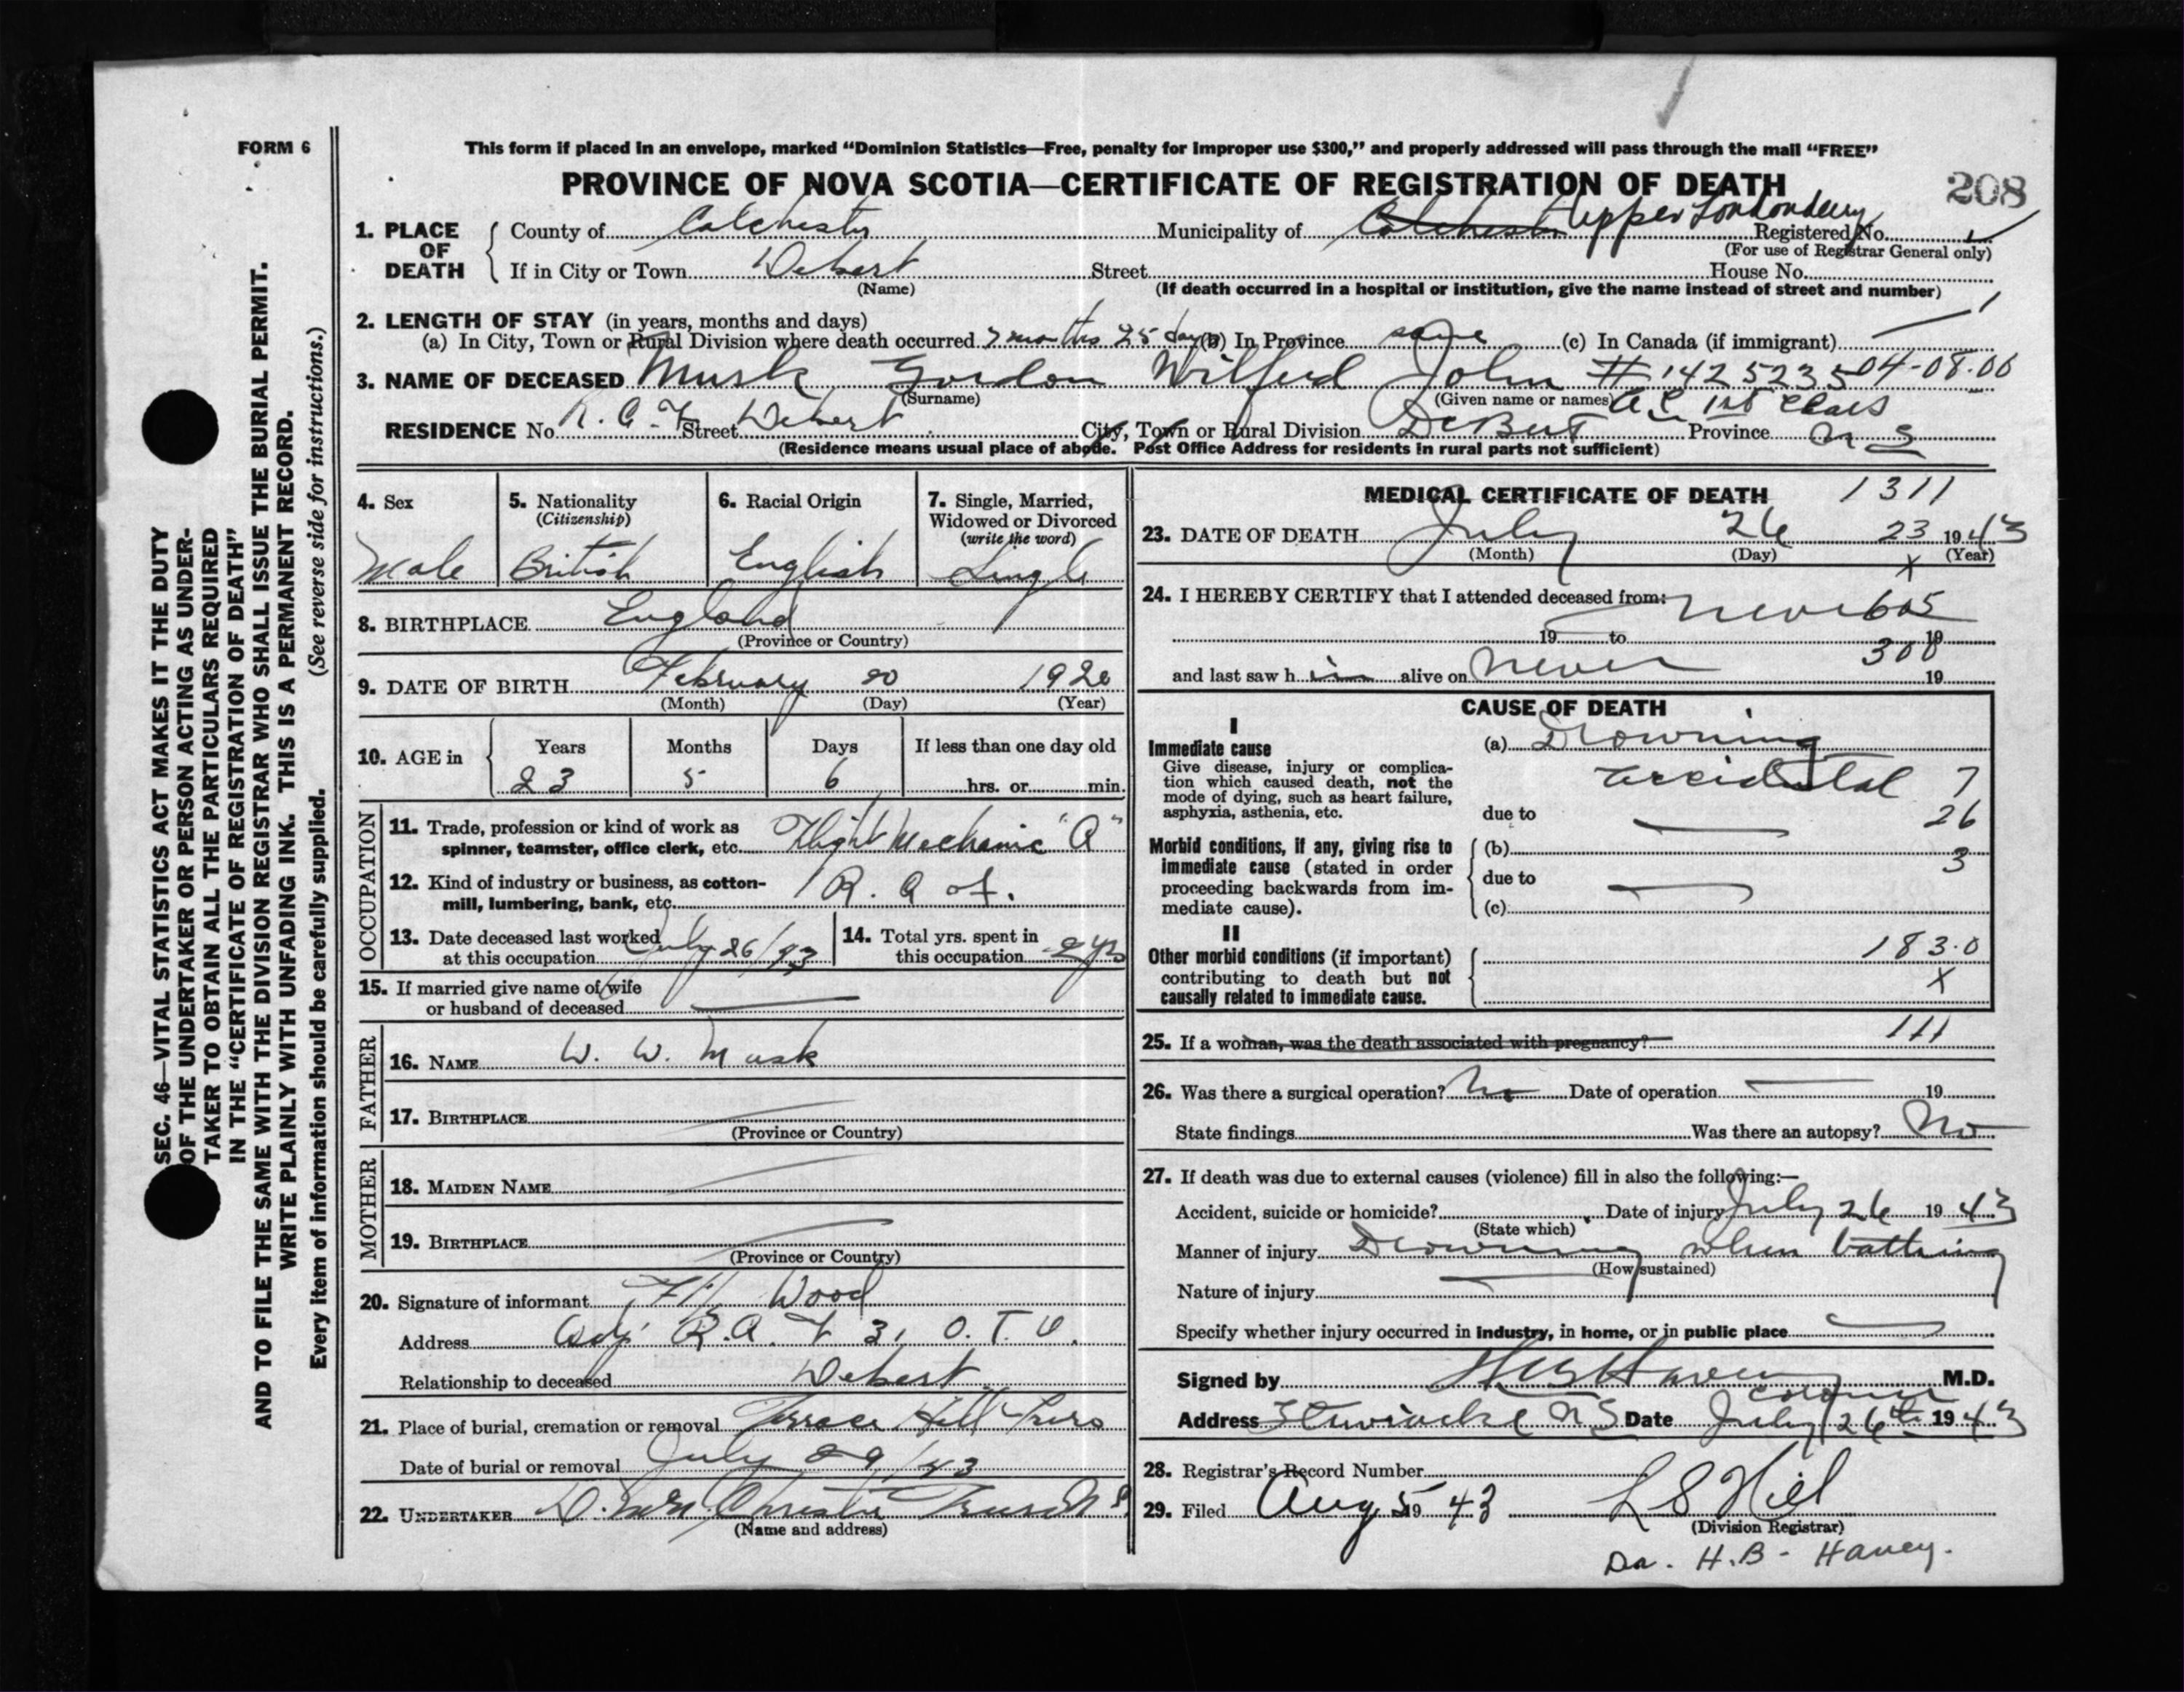 FORM 6
This form if placed in an envelope, marked “Dominion Statistics—Free, penalty for improper use $300,” and properly addressed will pass through the mail “FREE”
PROVINCE OF NOVA SCOTIA—CERTIFICATE OF REGISTRATION OF DEATH
208
1. PLACE OF DEATH
County of Colchester Municipality of Colchester Upper Londonderry Registered No.
(For use of Registrar General only)
If in City or Town Debert Street House No.
(Name) (If death occurred in a hospital or institution, give the name instead of street and number)
2. LENGTH OF STAY (in years, months and days)
(a) In City, Town or Rural Division where death occurred 7 months 25 days (b) In Province same (c) In Canada (if immigrant)
3. NAME OF DECEASED Musk Gordon Wilfred John # 1425235 04-08.00
(Surname) (Given name or names) A.C. 1st Class
RESIDENCE No. R.A.F Street Debert City, Town or Rural Division DeBert Province N S
(Residence means usual place of abode. Post Office Address for residents in rural parts not sufficient)
4. Sex
Male
5. Nationality
(Citizenship)
British
6. Racial Origin
English
7. Single, Married,
Widowed or Divorced
(write the word)
Single
8. BIRTHPLACE England
(Province or Country)
9. DATE OF BIRTH February 20 1920
(Month) (Day) (Year)
10. AGE in
Years Months Days If less than one day old
23 5 6 hrs. or min.
OCCUPATION
11. Trade, profession or kind of work as
spinner, teamster, office clerk, etc. Flight Mechanic "A"
12. Kind of industry or business, as cotton-
mill, lumbering, bank, etc. R. A. F.
13. Date deceased last worked
at this occupation July 26/43
14. Total yrs. spent in
this occupation 2 yrs
15. If married give name of wife
or husband of deceased
FATHER
16. NAME W. W. Musk
17. BIRTHPLACE
(Province or Country)
MOTHER
18. MAIDEN NAME
19. BIRTHPLACE
(Province or Country)
20. Signature of informant F/L Wood
Address Adj. R.A.F 31 O.T.U.
Relationship to deceased Debert
21. Place of burial, cremation or removal Terrace Hill Truro
Date of burial or removal July 29/43
22. UNDERTAKER Christie Truro N S
(Name and address)
MEDICAL CERTIFICATE OF DEATH 1311
23. DATE OF DEATH July 26 23 1943
(Month) (Day) X (Year)
24. I HEREBY CERTIFY that I attended deceased from: never 605
19 to 19
308
and last saw h im alive on never 19
CAUSE OF DEATH
I
Immediate cause
Give disease, injury or complica-
tion which caused death, not the
mode of dying, such as heart failure,
asphyxia, asthenia, etc.
(a) Drowning
accidental 7
due to 26
Morbid conditions, if any, giving rise to
immediate cause (stated in order
proceeding backwards from im-
mediate cause).
(b) 3
due to
(c)
II
Other morbid conditions (if important)
contributing to death but not
causally related to immediate cause.
183.0
X
25. If a woman, was the death associated with pregnancy? 111
26. Was there a surgical operation? No Date of operation 19
State findings Was there an autopsy? No
27. If death was due to external causes (violence) fill in also the following:—
Accident, suicide or homicide? Date of injury July 26 1943
(State which)
Manner of injury Drowning when bathing
(How sustained)
Nature of injury
Specify whether injury occurred in industry, in home, or in public place
Signed by M.D.
coroner
Address Stewiacke N S Date July 26th 1943
28. Registrar's Record Number
29. Filed Aug 5 1943 L S Hill
(Division Registrar)
Dr. H.B - Havey.
SEC. 46—VITAL STATISTICS ACT MAKES IT THE DUTY
OF THE UNDERTAKER OR PERSON ACTING AS UNDER-
TAKER TO OBTAIN ALL THE PARTICULARS REQUIRED
IN THE “CERTIFICATE OF REGISTRATION OF DEATH”
AND TO FILE THE SAME WITH THE DIVISION REGISTRAR WHO SHALL ISSUE THE BURIAL PERMIT.
WRITE PLAINLY WITH UNFADING INK. THIS IS A PERMANENT RECORD.
Every item of information should be carefully supplied. (See reverse side for instructions.)